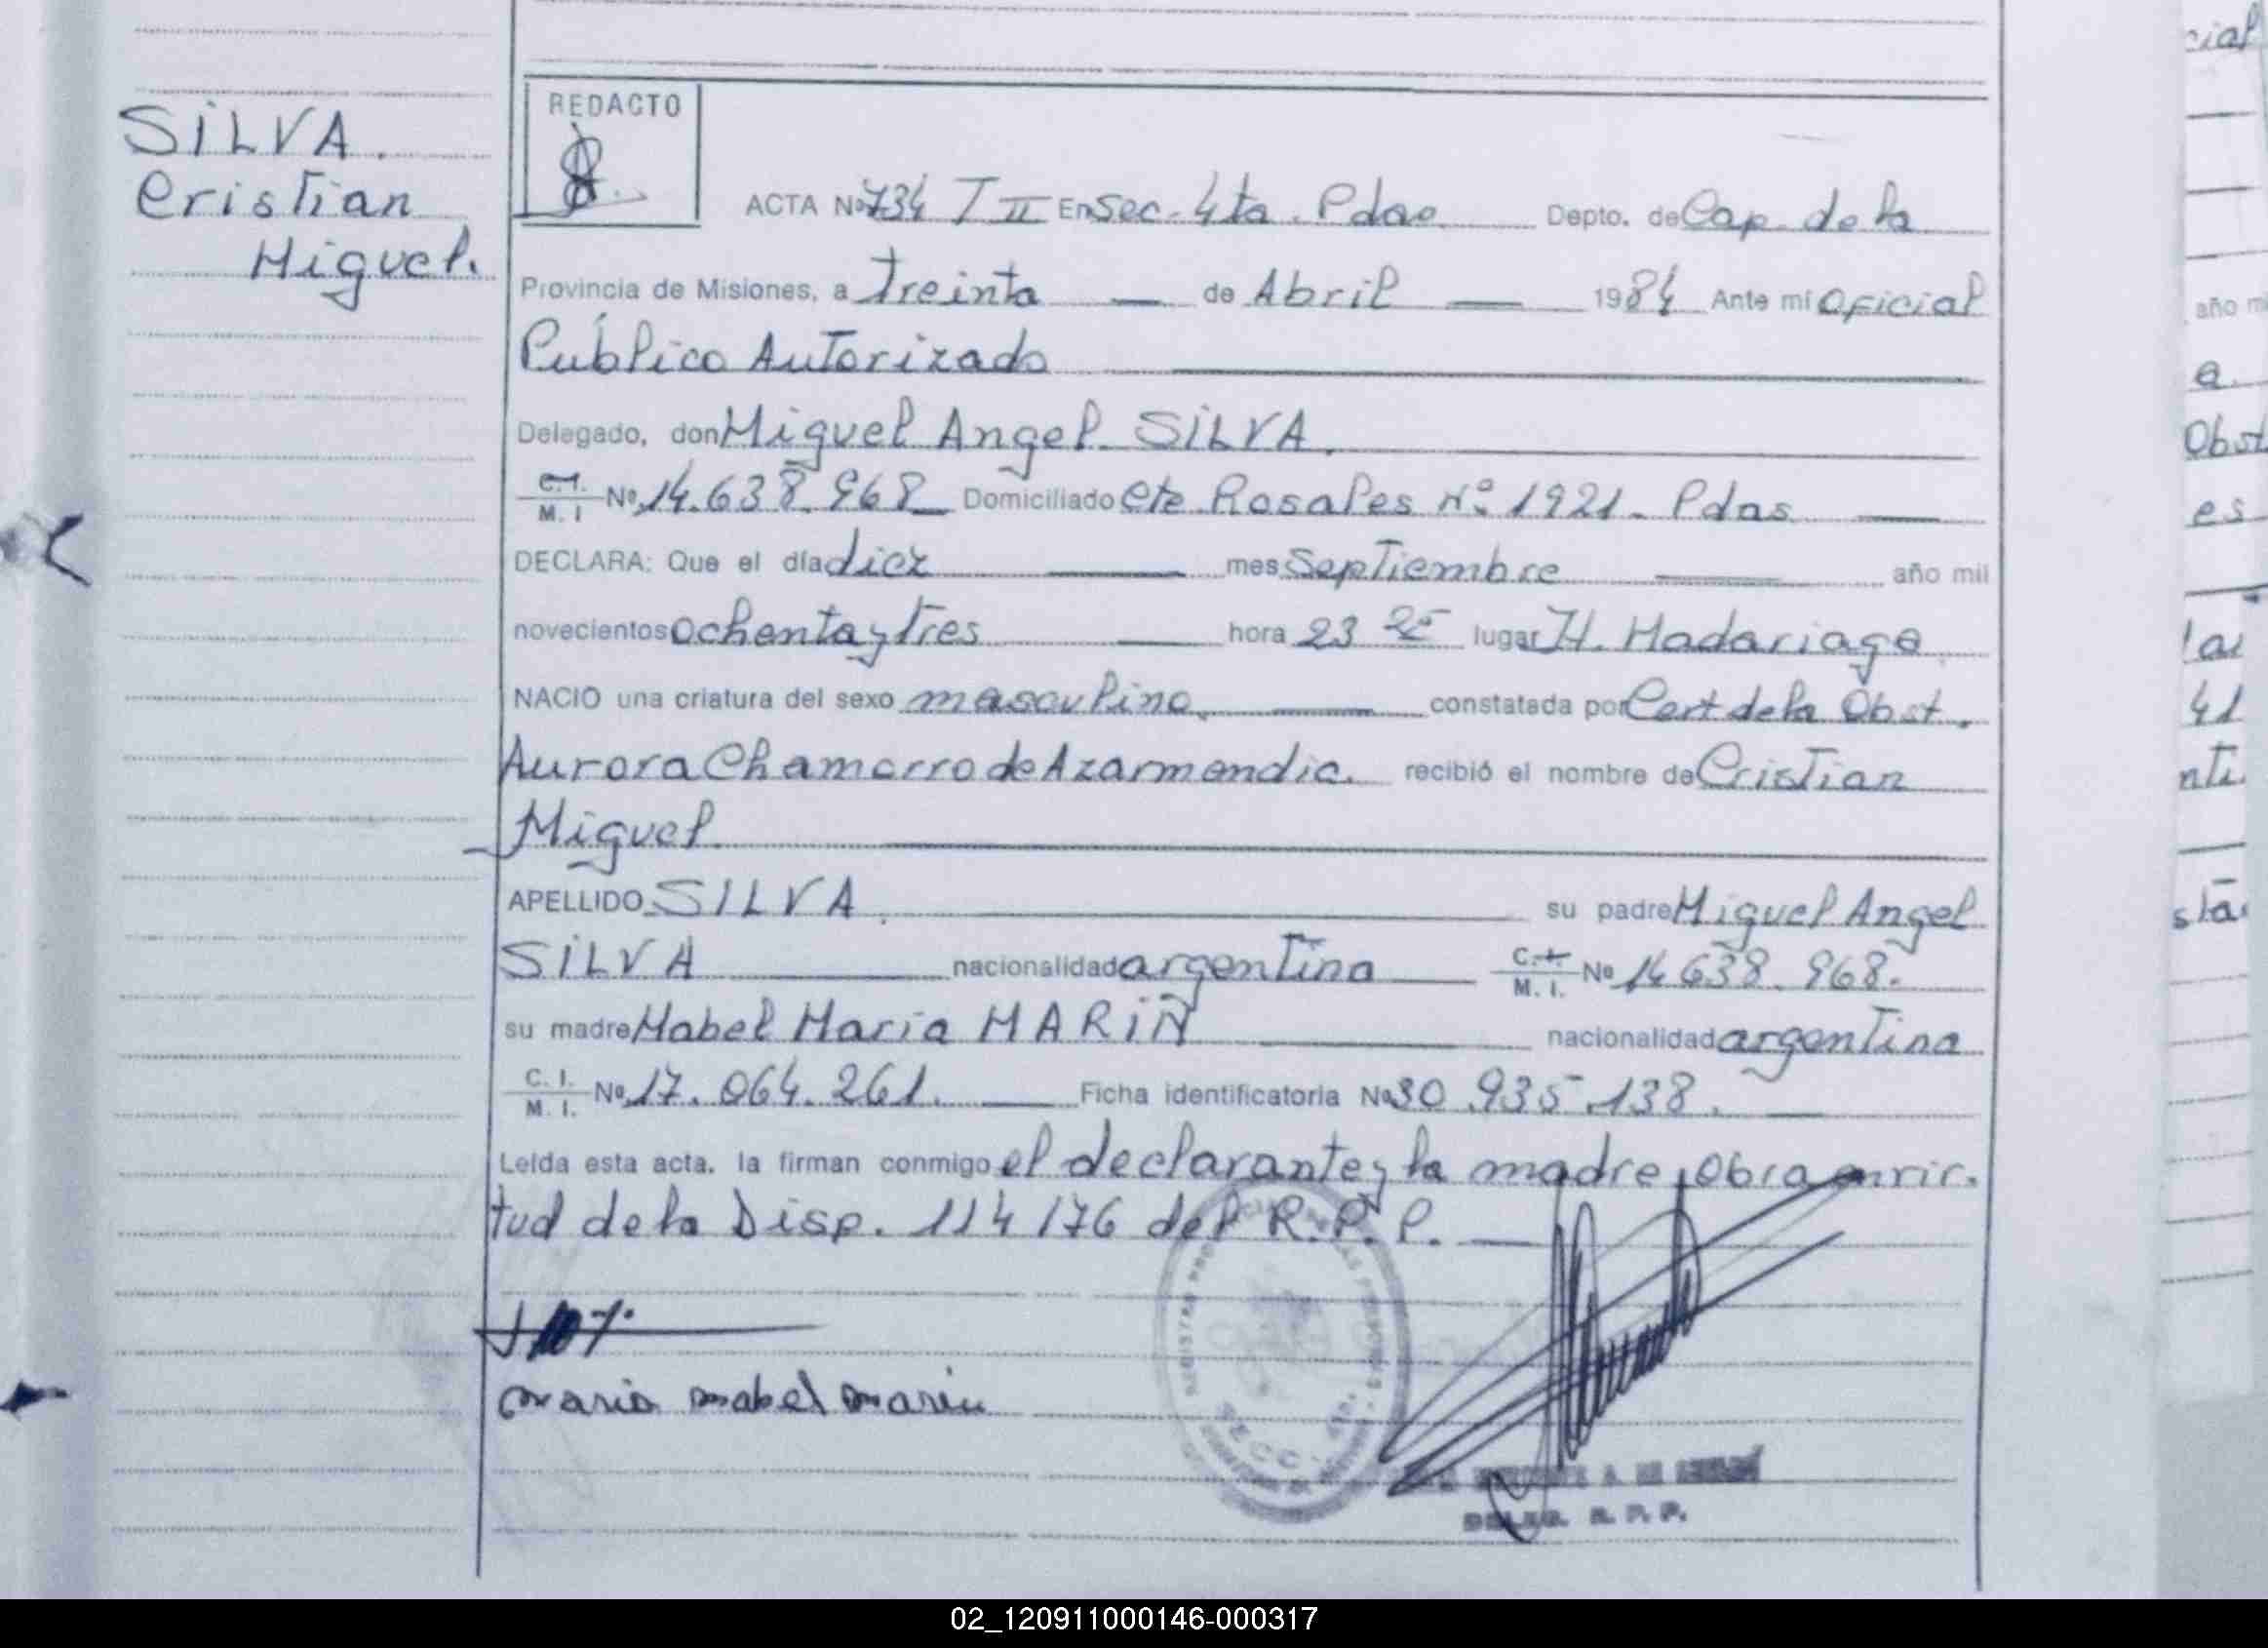 SILVA.
Cristian
Miguel.
REDACTO
ACTA Nº 734 T II En Sec. 4ta. Pdas. Depto. de Cap. de la
Provincia de Misiones, a treinta — de Abril — 1984 Ante mí Oficial
Público Autorizado
Delegado, don Miguel Angel SILVA.
C.I. M. I Nº 14.638.968 Domiciliado Cte Rosales Nº 1921. Pdas —
DECLARA: Que el día diez — mes Septiembre — año mil
novecientos ochenta y tres — hora 23 25 lugar H. Madariaga
NACIO una criatura del sexo masculino. — constatada por Cert de la Obst.
Aurora Chamorro de Azarmendia. recibió el nombre de Cristian
Miguel
APELLIDO SILVA. su padre Miguel Angel
SILVA — nacionalidad argentina — C.I. M. I. Nº 14.638.968.
su madre Mabel Maria MARIÑ — nacionalidad argentina
C. I. M. I. Nº 17.064.261. — Ficha identificatoria Nº 30.935.138. —
Leída esta acta, la firman conmigo el declarante y la madre, obra en vir.
tud de la Disp. 114/76 del R.P.P. —
maria mabel marin
SECC. 4ta.
DELEG. R. P. P.
cial
año m
a
Obst
es
la
41
nti
sta
02_120911000146-000317